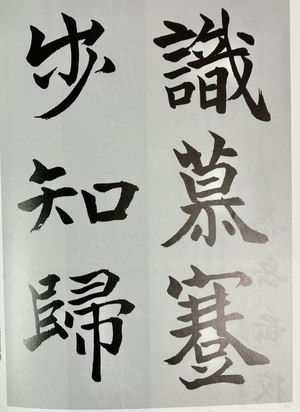 識慕蹇
步知歸